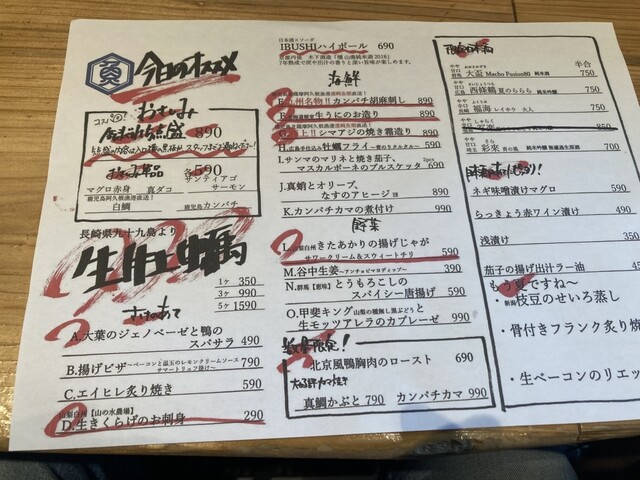 今日のオススメ
おさしみ
コスパ◎!
890
おさしみ単品 各590
マグロ赤身 真ダコ サンティアゴサーモン
鹿児島阿久根漁港直送!
白鯛 鹿児島 カンパチ
長崎県九十九島より
生牡蠣
1ケ 350
3ケ 990
5ケ 1590
さかのあて
A.大葉のジェノベーゼと鴨の
スパサラ 490
B.揚げピザ ~ベーコンと温玉のレモンクリームソース
サマートリュフ掛け~ 590
C.エイヒレ炙り焼き 590
山梨白州【山の水農場】
D.生きくらげのお刺身 290
日本酒×ソーダ
IBUSHIハイボール 690
京都丹後 木下酒造「燻 山廃純米酒2018」
7年熟成で炭や出汁の香りと深い旨味が楽しめます。
海鮮
九州名物!!カンパチ胡麻刺し 890
生うにのお造り 890
シマアジの焼き霜造り 890
広島手仕込み牡蠣フライ ~煮のりタルタル~ 590
I.サンマのマリネと焼き茄子、 2pcs
マスカルポーネのブルスケッタ 690
J.真蛸とオリーブ、
なすのアヒージョ 890
K.カンパチカマの煮付け 990
野菜
L.山梨白州きたあかりの揚げじゃが
サワークリーム&スウィートチリ 590
M.谷中生姜~アンチョビマヨディップ~ 390
N.群馬【恵味】とうもろこしの
スパイシー唐揚げ 590
O.甲斐キング 山梨の種無し黒ぶどうと
生モッツアレラのカプレーゼ 990
数量限定!
北京風鴨胸肉のロースト 690
真鯛かぶと 790 カンパチカマ 990
半合
やや甘口 群馬 大盃 Macho Fusion80 純米酒 750
やや甘口 広島 西條鶴 夏のららら 純米吟醸 750
福海 レイホウ 火入 750
850
彩來 青の風 純米吟醸無濾過生原酒 750
ネギ味噌漬けマグロ 590
らっきょう赤ワイン漬け 490
浅漬け 350
茄子の揚げ出汁ラー油 450
もう夏ですね~
・新潟 枝豆のせいろ蒸し
・骨付きフランク炙り焼
・生ベーコンのリエッ